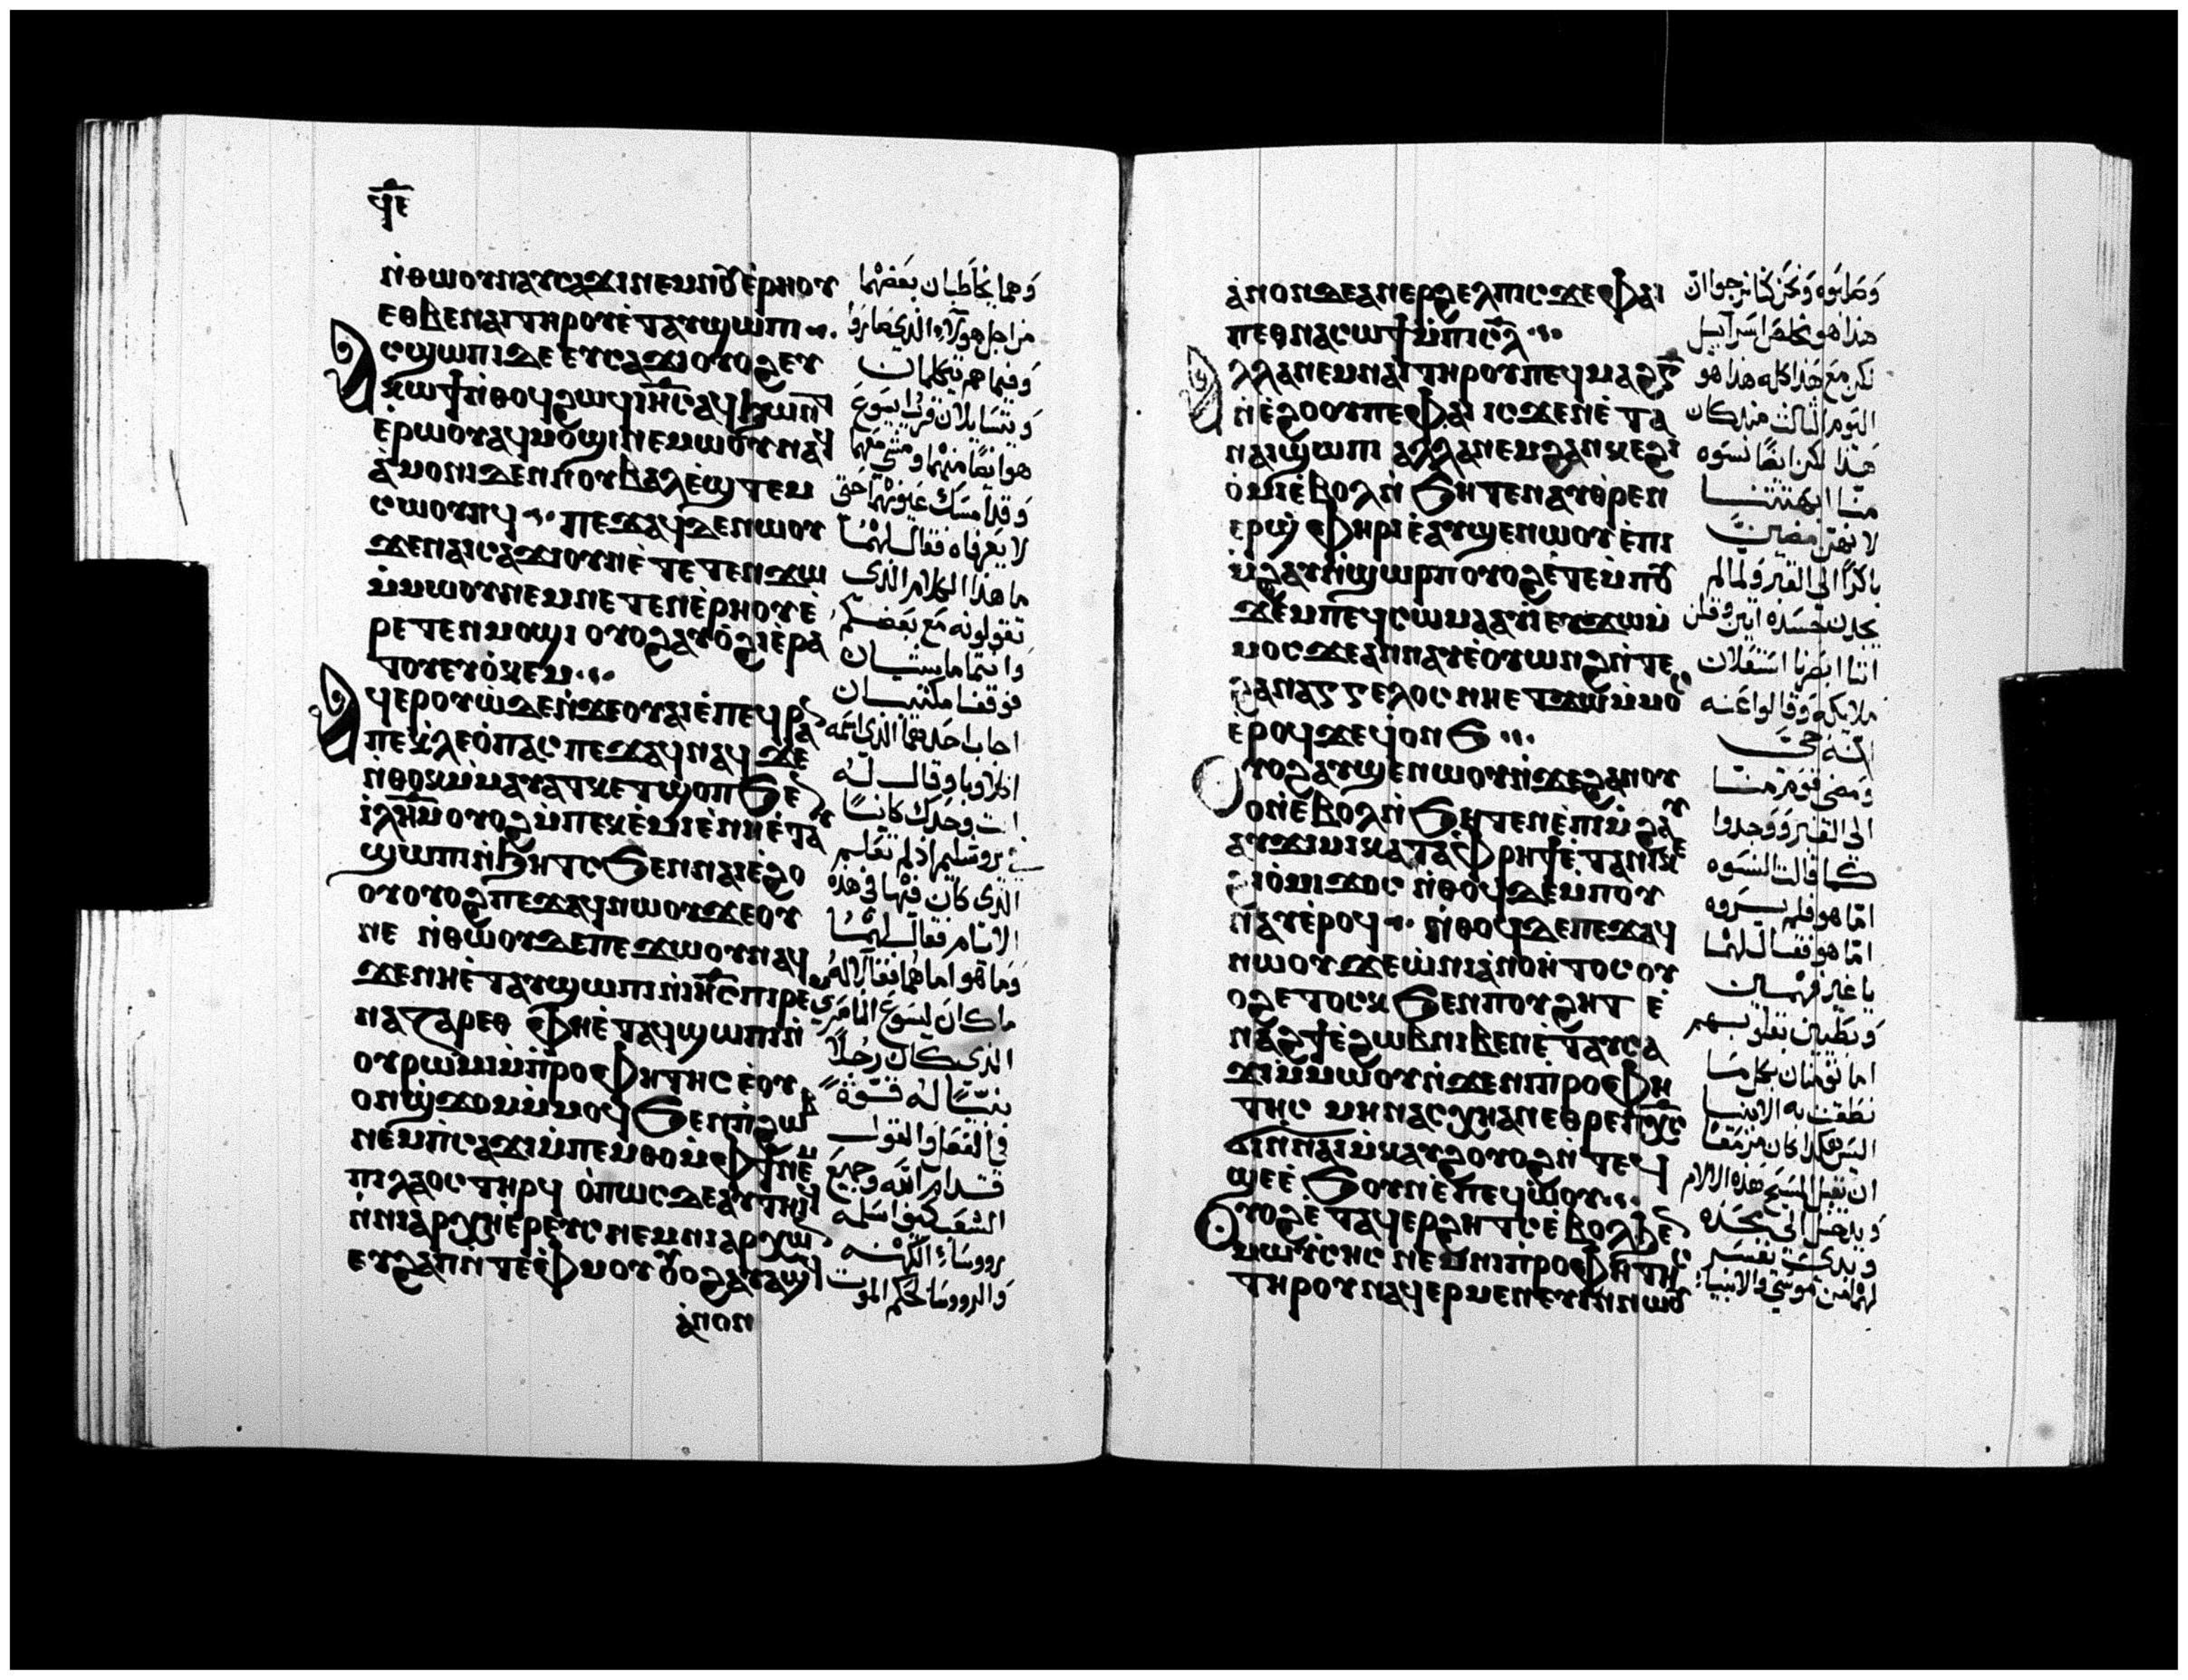 ϥⲉ
ⲛ̇ⲑⲱⲟⲩⲛⲁⲩⲥⲁϫⲓⲛⲉⲙⲛⲟⲩⲉ̇ⲣⲏⲟⲩ
ⲉⲑⲃⲉⲛⲁⲓⲧⲏⲣⲟⲩⲉ̇ⲧⲁⲩϣⲱⲡⲓ
ⲁⲥϣⲱⲡⲓⲇⲉⲉⲩⲥⲁϫⲓⲟⲩⲟϩⲉⲩ
ⲕⲱϯⲛ̇ⲑⲟϥϩⲱϥⲓⲏ̅ⲥ̅ⲁϥϧⲱⲛⲧ
ⲉ̇ⲣⲱⲟⲩⲁϥⲙⲟϣⲓⲛⲉⲙⲱⲟⲩⲛⲁⲩ
ⲁ̇ⲙⲟⲛⲓⲇⲉⲛⲛⲟⲩⲃⲁⲗⲉ̇ϣⲧⲉⲙ
ⲥⲱⲟⲩⲛϥ ⲡⲉϫⲁϥⲇⲉⲛⲱⲟⲩ
ϫⲉⲛⲁⲓⲥⲁϫⲓⲟⲩⲛⲉ̇ⲧⲉⲧⲉⲛϫⲱ
ⲙ̇ⲙⲱⲟⲩⲛⲉⲙⲛⲉⲧⲉⲛⲉ̇ⲣⲏⲟⲩⲉ̇
ⲣⲉⲧⲉⲛⲙⲟϣⲓ ⲟⲩⲟϩⲁⲩⲟ̇ϩⲓⲉ̇ⲣⲁ
ⲧⲟⲩⲉⲩⲟ̇ⲕⲉⲙ
ⲁϥⲉⲣⲟⲩⲱ̇ⲇⲉⲛ̇ϫⲉⲟⲩⲁⲓⲉ̇ⲡⲉϥⲣⲁ
ⲡⲉⲕ̇ⲗⲉⲟ̇ⲡⲁⲥ ⲡⲉϫⲁϥⲛⲁϥ ϫⲉ
ⲛ̇ⲑⲟⲕⲙ̇ⲙⲁⲩⲁⲧⲕⲉⲧϣⲟⲡϧⲉⲛ
ⲓ̇ⲗ̅ⲏ̅ⲙ̅ⲟⲩⲟϩⲙ̇ⲡⲉⲕⲉ̇ⲙⲓⲉ̇ⲛⲏⲉ̇ⲧⲁⲩ
ϣⲱⲡⲓⲛ̇ϧⲏⲧⲥϧⲉⲛⲛⲁⲓⲉ̇ϩⲟ
ⲟⲩⲟⲩⲟϩⲡⲉϫⲁϥⲛⲱⲟⲩϫⲉⲟⲩ
ⲛⲉ ⲛ̇ⲑⲱⲟⲩⲇⲉⲡⲉϫⲱⲟⲩⲛⲁϥ
ϫⲉⲛⲏⲉ̇ⲧⲁⲩϣⲱⲡⲓⲛ̇ⲓⲏ̅ⲥ̅ⲡⲓⲣⲉⲙ
ⲛⲁⲍⲁⲣⲉⲑ ⲫⲏⲉ̇ⲧⲁϥϣⲱⲡⲓⲛ̇
ⲟⲩⲣⲱⲙⲓⲙ̇ⲡ̇ⲣⲟⲫⲏⲧⲏⲥ ⲉ̇ⲟⲩ
ⲟⲛϣ̇ϫⲟⲙⲙ̇ⲙⲟϥϧⲉⲛⲡ̇ϩⲱⲃ
ⲛⲉⲙⲡ̇ⲥⲁϫⲓⲙ̇ⲡⲉⲙⲑⲟⲙ̇ⲫϯⲛⲉⲙ
ⲡⲓⲗⲁⲟⲥⲧⲏⲣϥ ⲟ̇ⲡⲱⲥⲇⲉⲁⲩⲧⲏⲓϥ
ⲛ̇ⲛⲓⲁⲣⲭⲏⲉ̇ⲣⲉⲩⲥ ⲛⲉⲙⲛⲓⲁⲣⲭⲱⲛ
ⲉⲩϩⲁⲡⲛ̇ⲧⲉⲫ̇ⲙⲟⲩⲟⲩⲟϩⲁⲩⲁϣϥ
ⲁ̇ⲛⲟⲛ
وهما يخاطبان بعضهما
من اجل هولاء الذي صاروا
وفيما هم يتكلمان
ويتسايلان قرب يسوع
هو ايضا منهما ومشي معهما
وقد امسك عيونهما حتى
لا يعرفاه فقال لهما
ما هذا الكلام الذى
تقولونه مع بعضكم
وانتما ماشيان
فوقفا مكتئبان
اجاب احدهما الذى اسمه
اكلاوبا وقال له
انت وحدك كاينا
في يروشليم اذ لم تعلم
الذى كان فيها فى هذه
الايام فقال لهما
وما هو اما هما فقالا له
ما كان ليسوع الناصري
الذى كان رجلا
نبيا له قوة
في الفعل والقول
قدام الله وجميع
الشعب كيف اسلمه
رووساء الكهنه
والرووسا لحكم الموت
ⲁ̇ⲛⲟⲛⲇⲉⲁⲛⲉⲣϩⲉⲗⲡⲓⲥϫⲉⲫⲁⲓ
ⲡⲉⲑⲛⲁⲥⲱϯⲙ̇ⲡⲓⲥ̅ⲗ̅
ⲁⲗⲗⲁⲛⲉⲙⲛⲁⲓⲧⲏⲣⲟⲩⲡⲉϥⲙⲁϩⲅ̅
ⲛ̇ⲉ̇ϩⲟⲟⲩⲡⲉⲫⲁⲓ ⲓⲥϫⲉⲛⲉ̇ⲧⲁ
ⲛⲁⲓϣⲱⲡⲓ ⲁⲗⲗⲁⲛⲉⲙϩⲁⲛⲕⲉϩⲓ
ⲟ̇ⲙⲓⲉ̇ⲃⲟⲗⲛ̇ϧⲏⲧⲉⲛⲁⲩⲑ̇ⲣⲉⲛ
ⲉⲣϣ̇ⲫⲏⲣⲓⲉ̇ⲁⲩϣⲉⲛⲱⲟⲩⲉ̇ⲡⲓ
ⲙ̇ϩⲁⲩⲛ̇ϣⲱⲣⲡⲟⲩⲟϩⲉ̇ⲧⲉⲙ̇ⲡⲟⲩ
ϫⲉⲙⲡⲉϥⲥⲱⲙⲁⲁⲩⲓ̇ⲉⲩϫⲱⲙ̇
ⲙⲟⲥϫⲉⲁⲛⲛⲁⲩⲉ̇ⲟⲩⲱⲛϩⲛ̇ⲧⲉ
ϩⲁⲛⲁⲅⲅⲉⲗⲟⲥ ⲛⲏⲉⲧϫⲱⲙ̇ⲙⲟⲥ
ⲉ̇ⲣⲟϥϫⲉϥ̇ⲟⲛϧ
ⲟⲩⲟϩⲁⲩϣⲉⲛⲱⲟⲩⲛ̇ϫⲉϩⲁⲛⲟⲩ
ⲟⲛⲉ̇ⲃⲟⲗⲛ̇ϧⲏⲧⲉⲛⲉ̇ⲡⲓⲙ̇ϩⲁⲩ
ⲁⲩϫⲓⲙⲓⲕⲁⲧⲁⲫ̇ⲣⲏϯⲉ̇ⲧⲁⲛⲓⲕⲉ
ϩⲓⲟ̇ⲙⲓϫⲟⲥ ⲛ̇ⲑⲟϥⲇⲉⲙ̇ⲡⲟⲩ
ⲛⲁⲩⲉ̇ⲣⲟϥ ⲛ̇ⲑⲟϥⲇⲉⲡⲉϫⲁϥ
ⲛⲱⲟⲩϫⲉⲱ̇ⲛⲓⲁ̇ⲛⲟⲏⲧⲟⲥⲟⲩ
ⲟϩⲉⲧⲟⲥⲕϧⲉⲛⲡⲟⲩϩⲏⲧ ⲉ̇
ⲛⲁϩϯⲉ̇ϩⲱⲃⲛⲓⲃⲉⲛⲉ̇ⲧⲁⲩⲥⲁ
ϫⲓⲙ̇ⲙⲱⲟⲩⲛ̇ϫⲉⲛⲓⲡ̇ⲣⲟⲫⲏ
ⲧⲏⲥ ⲙⲏⲛⲁⲥⲭⲏⲁⲛⲉⲑⲣⲉⲡⲭ̅ⲥ̅
ϭⲓⲛⲛⲁⲓⲙ̇ⲕⲁⲩϩⲟⲩⲟϩⲛ̇ⲧⲉϥ
ϣⲉⲉ̇ϧⲟⲩⲛⲉ̇ⲡⲉϥⲱ̇ⲟⲩ
ⲟⲩⲟϩⲉ̇ⲧⲁϥⲉⲣϩⲏⲧⲥⲉ̇ⲃⲟⲗϧⲉⲛ
ⲙⲱⲩ̇ⲥⲏⲥ ⲛⲉⲙⲛⲓⲡ̇ⲣⲟⲫⲏⲧⲏⲥ
ⲧⲏⲣⲟⲩⲛⲁϥⲉⲣⲙⲉⲛⲉⲩⲓⲛⲛⲱⲟⲩ
وصلبوه ونحن كنا نرجوا ان
هذا هو مخلص اسرآييل
لكن مع هذا كله هذا هو
اليوم الثالث منذ كان
هذا لكن ايضا نسوه
منا ابهتتنا
باكرا الي القبر ولما لم
يجدن جسده اتين وقلن
اننا ابصرنا استعلان
ملايكه وقالوا عنه
انه حي
ومضى قوم منا
الى القبر ووجدوا
كما قالت النسوه
اما هو فلم يروه
اما هو فقال لهما
يا غير فهمين
وبطيين بقلوبهم
اما تومنان بكل ما
نطقت به الانبيا
ان يقبل المسيح هذه الالام
ويدخل الى مجده
لهما من موسى والانبياء